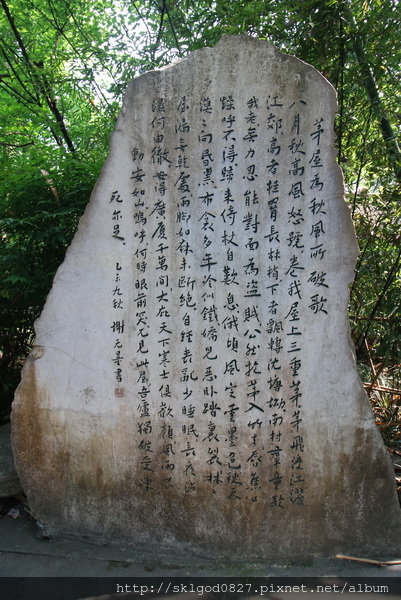 茅屋為秋風所破歌
八月秋高風怒號卷我屋上三重茅茅飛渡江灑
江郊高者挂罥長林梢下者飄轉沈塘坳南村羣童欺
我老無力忍能對面為盜賊公然抱茅入竹去唇焦口
燥呼不得歸來倚杖自歎息俄頃風定雲墨色秋天
漠々向昏黑布衾多年冷似鐵嬌兒惡卧踏裏裂牀々
屋漏無乾處雨腳如麻未斷絕自經喪亂少睡眠長夜沾
濕何由徹安得廣廈千萬間大庇天下寒士俱歡顏風雨不
動安如山嗚呼何時眼前突兀見此屋吾廬獨破受凍
死亦足 乙未九秋 謝无量書
http://sklgod0827.pixnet.net/album